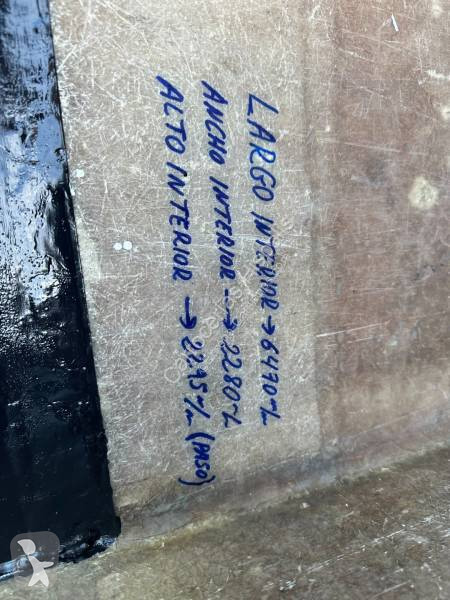 LARGO INTERIOR → 6470 m/m
ANCHO INTERIOR → 2280 m/m
ALTO INTERIOR → 2295 m/m (PASO)